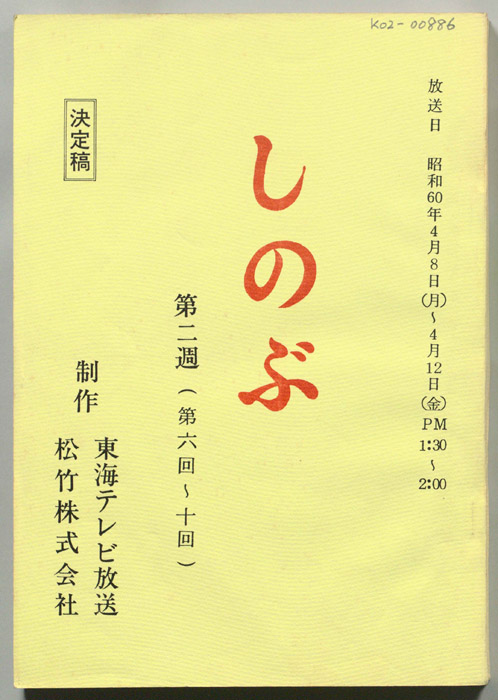 K02-00886
放送日 昭和60年4月8日(月)～4月12日(金)PM1:30～2:00
しのぶ
第二週(第六回～十回)
決定稿
制作
東海テレビ放送
松竹株式会社